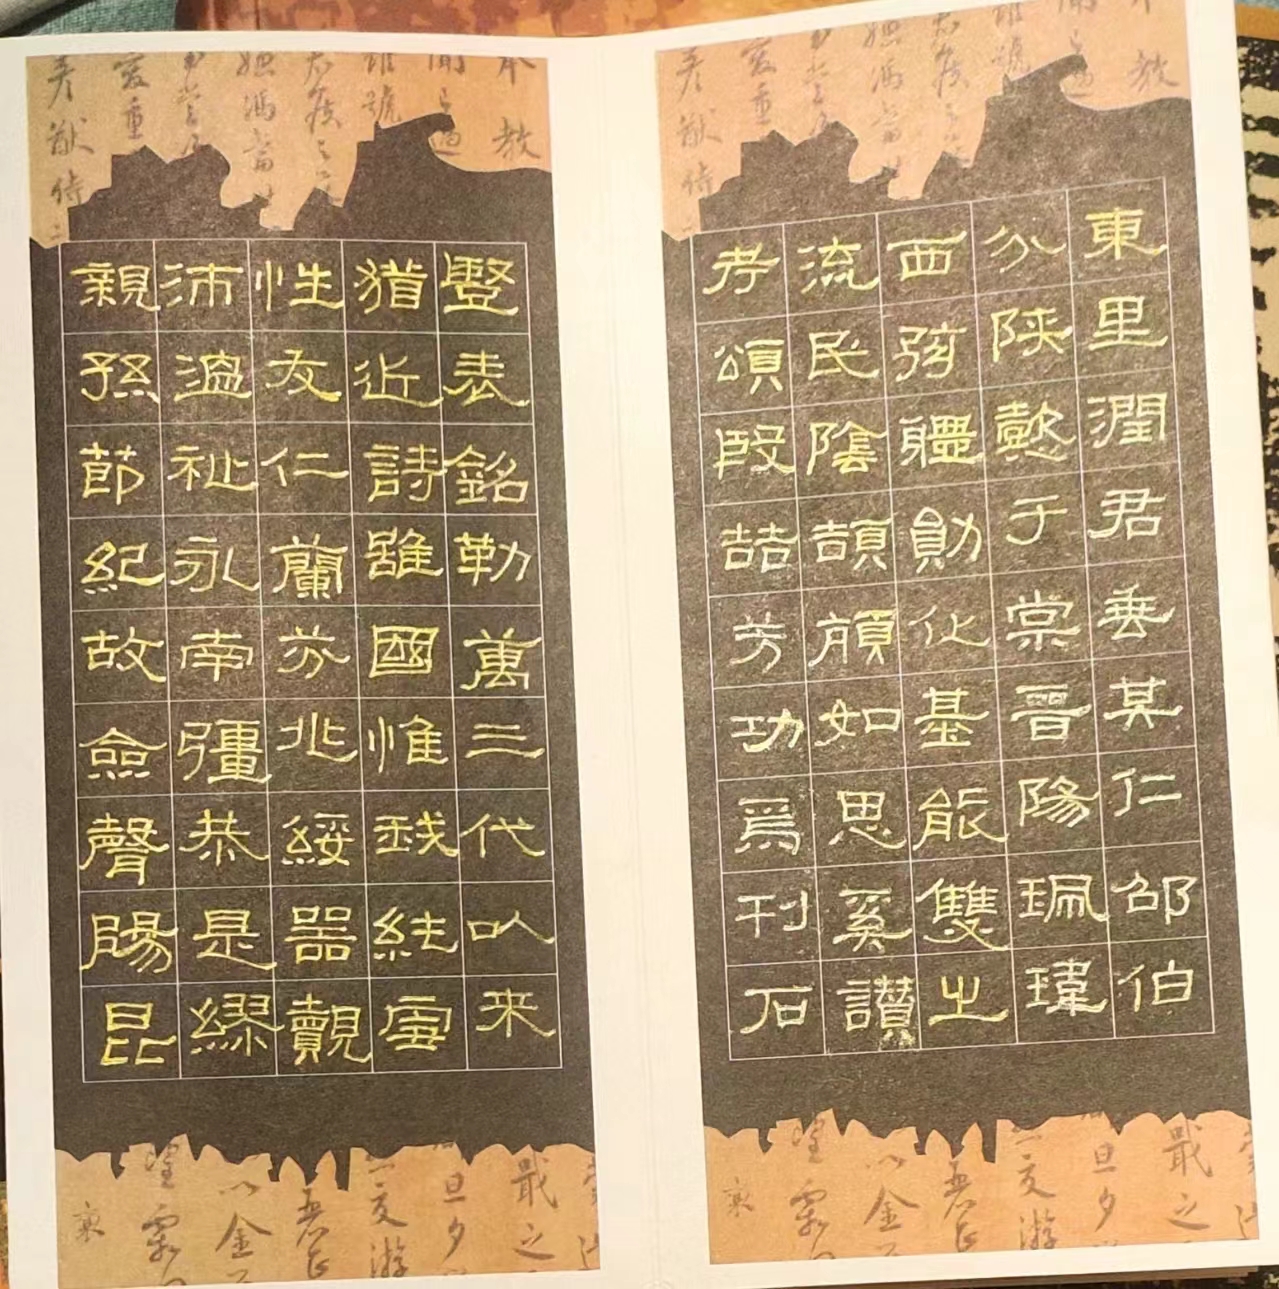 東里潤君垂其仁邵伯
分陝懿于棠晉陽珮瑋
西弦疆勛化基能雙之
流民陰頡頏如思奚讃
考頌殷喆芳功爲刊石
竪表銘勒萬三代以来
猶近詩雖國惟我純雪
性友仁蘭芬兆綏器覿
沛溫祉永南疆恭是繆
親孫節紀故僉聲腸昆